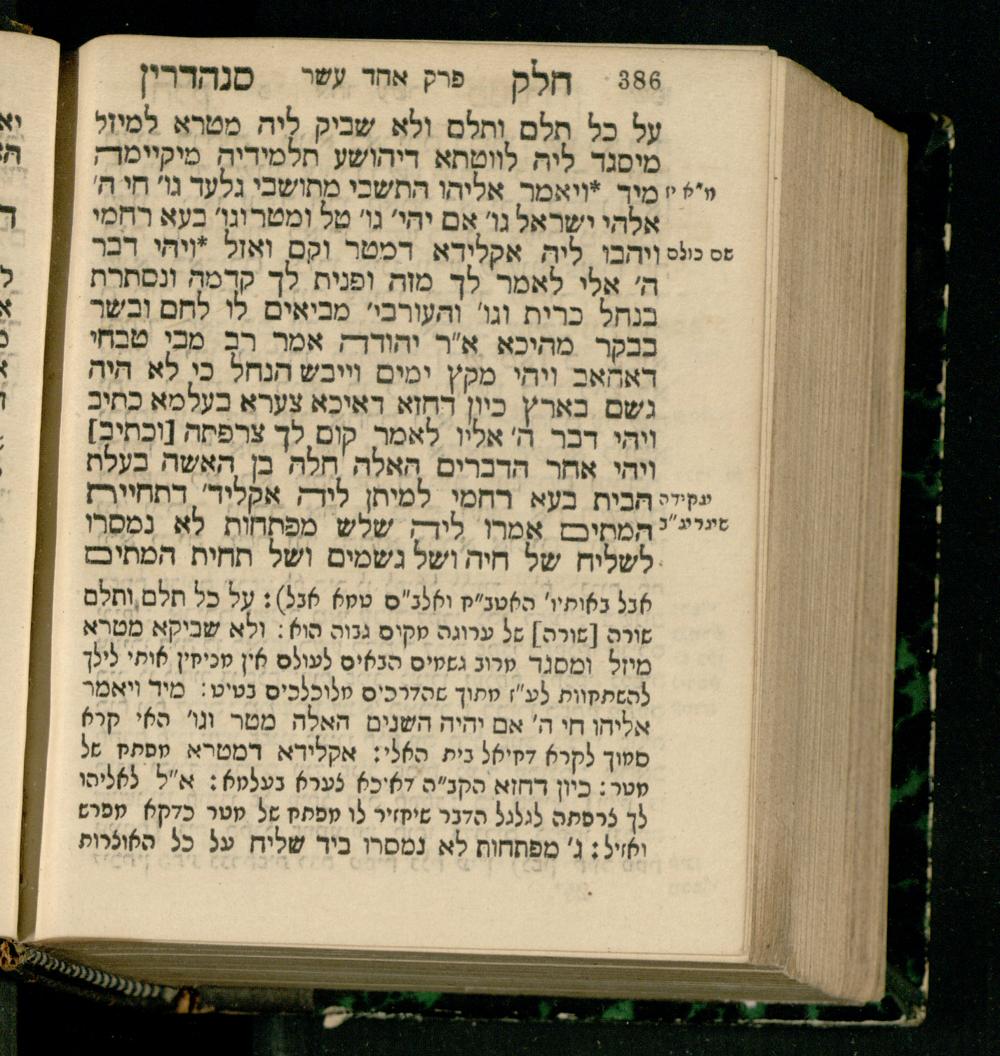 386 חלק פרק אחד עשר סנהדרין
על כל תלם ותלם ולא שביק ליה מטרא למיזל
מיסגד ליה לווטתא דיהושע תלמידיה מיקיימה
מ״א יז
מיד *ויאמר אליהו התשבי מתושבי גלעד גו׳ חי ה׳
אלהי ישראל גו׳ אם יהי׳ גו׳ טל ומטר וגו׳ בעא רחמי
שם כולם
ויהבו ליה אקלידא דמטר וקם ואזל *ויהי דבר
ה׳ אלי לאמר לך מזה ופנית לך קדמה ונסתרת
בנחל כרית וגו׳ והעורבי׳ מביאים לו לחם ובשר
בבקר מהיכא א״ר יהודה אמר רב מבי טבחי
דאחאב ויהי מקץ ימים וייבש הנחל כי לא היה
גשם בארץ כיון דחזא דאיכא צערא בעלמא כתיב
ויהי דבר ה׳ אליו לאמר קום לך צרפתה [וכתיב]
ויהי אחר הדברים האלה חלה בן האשה בעלת
עקידה
הבית בעא רחמי למיתן ליה אקליד׳ דתחיית
המתים אמרו ליה שלש מפתחות לא נמסרו
לשליח של חיה ושל גשמים ושל תחית המתים
אבל באותיו׳ האטב״ח ואלב״ם טמא אבל): על כל תלם ותלם
שורה [שורה] של ערוגה מקום גבוה הוא: ולא שביקא מטרא
מיזל ומסגד מרוב גשמים הבאים לעולם אין מניחין אותי לילך
להשתחוות לע״ז מתוך שהדרכים מלוכלכים בטיט: מיד ויאמר
אליהו חי ה׳ אם יהיה השנים האלה מטר וגו׳ האי קרא
סמוך לקרא דחיאל בית האלי: אקלידא דמטרא מפתח של
מטר: כיון דחזא הקב״ה דאיכא צערא בעלמא: א״ל לאליהו
לך צרפתה לגלגל הדבר שיחזיר לו מפתח של מטר כדקא מפרש
ואזיל: ג׳ מפתחות לא נמסרו ביד שליח על כל האוצרות